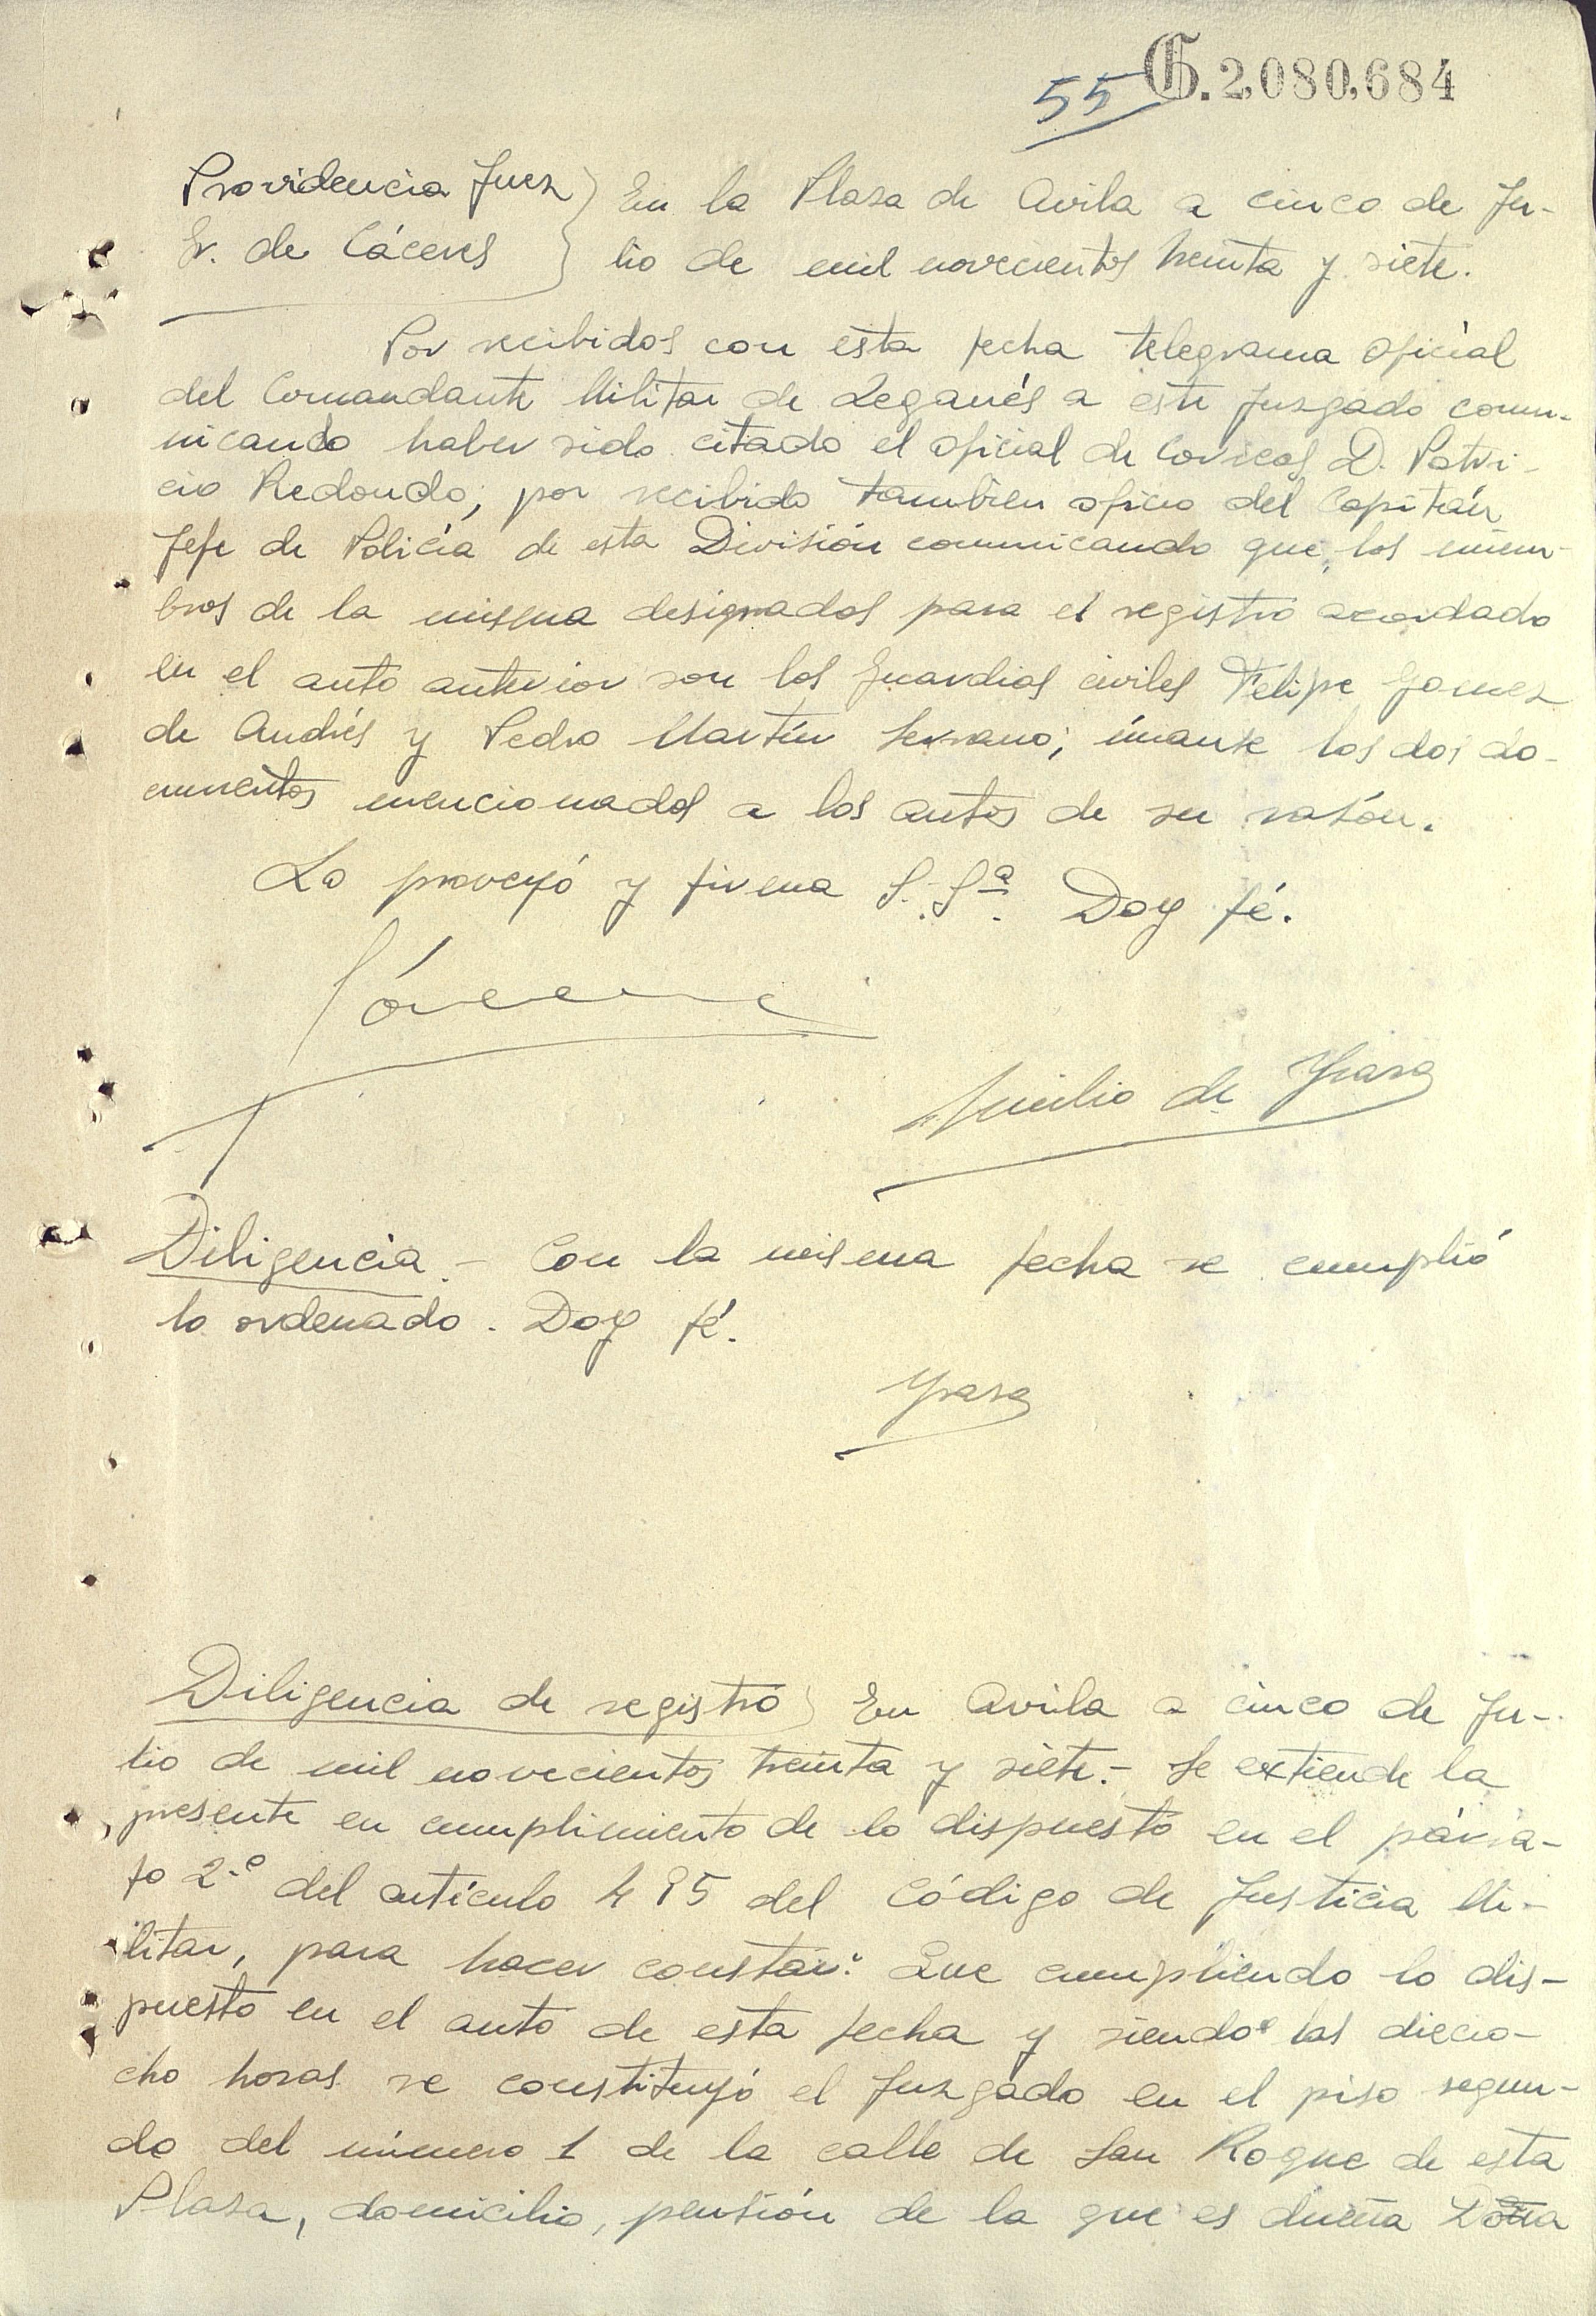 55 G.2,080,684
Providencia Juez } En la Plaza de Avila a cinco de Ju-
Sr. de Cáceres } lio de mil novecientos treinta y siete.
Por recibidos con esta fecha telegrama oficial
del Comandante Militar de Leganés a este Juzgado comu-
nicando haber sido citado el oficial de Correos D. Patri-
cio Redondo; por recibido tambien oficio del Capitán
Jefe de Policía de esta División comunicando que los miem-
bros de la misma designados para el registro acordado
en el auto anterior son los guardias civiles Felipe Gomez
de Andrés y Pedro Martín Serrano; únanse los dos do-
cumentos mencionados a los autos de su razón.
Lo proveyó y firma S. Sª. Doy fé.
Cáceres
Emilio de Ysasa
Diligencia.- Con la misma fecha se cumplió
lo ordenado. Doy fé.
Ysasa
Diligencia de registro) En Avila a cinco de Ju-
lio de mil novecientos treinta y siete.- Se extiende la
presente en cumplimiento de lo dispuesto en el párra-
fo 2.º del artículo 495 del Código de Justicia Mi-
litar, para hacer constar: Que cumpliendo lo dis-
puesto en el auto de esta fecha y siendo las diecio-
cho horas se constituyó el Juzgado en el piso segun-
do del número 1 de la calle de San Roque de esta
Plaza, domicilio, pensión de la que es dueña Doña